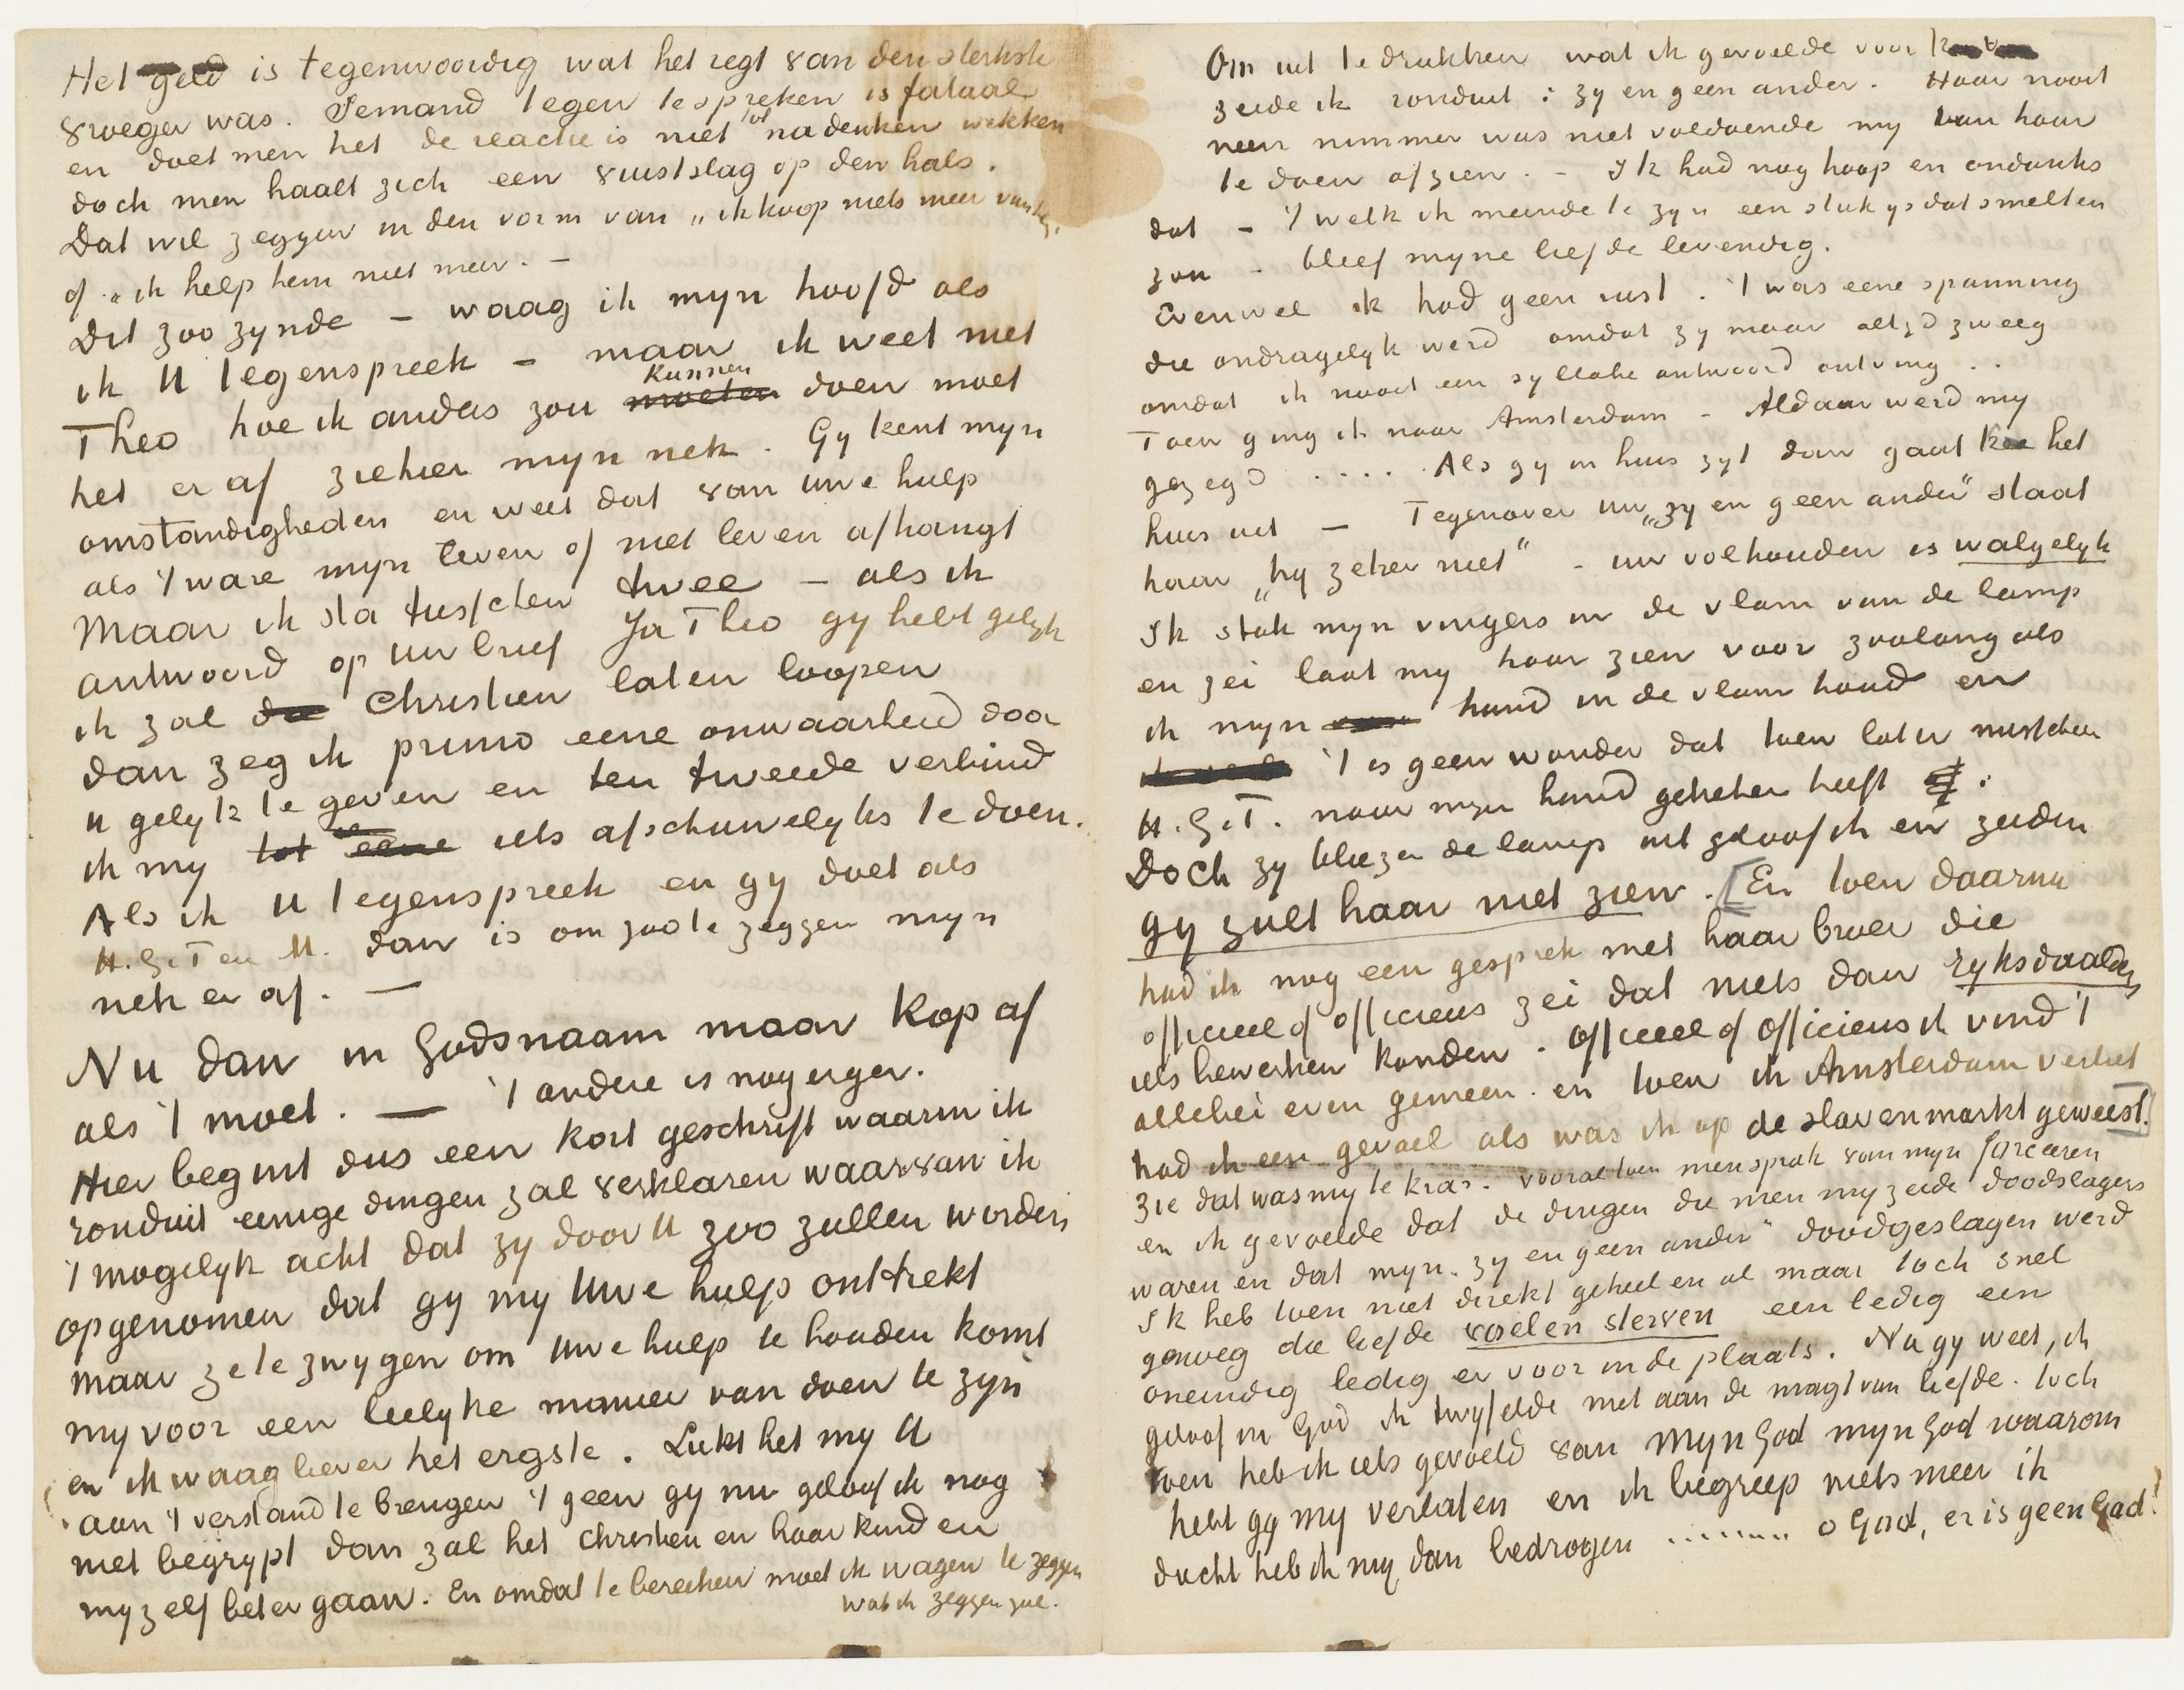 Het geld is tegenwoordig wat het regt van den sterkste
vroeger was. Iemand tegen te spreken is fataal
en doet men het de reactie is niet tot nadenken wekken
doch men haalt zich een vuistslag op den hals.
Dat wil zeggen in den vorm van „ik koop niets meer van hem
of „ik help hem niet meer. –
Dit zoo zynde – waag ik myn hoofd als
ik U tegenspreek – maar ik weet niet
Theo hoe ik anders zou moeten kunnen doen moet
het er af ziehier myn nek. Gy kent myn
omstandigheden en weet dat van uwe hulp
als 't ware myn leven of niet leven afhangt
Maar ik sta tusschen twee – als ik
antwoord op uw brief Ja Theo gy hebt gelyk
ik zal Christien laten loopen
dan zeg ik primo eene onwaarheid door
u gelyk te geven en ten tweede verbind
ik my tot eene iets afschuwelyks te doen.
Als ik U tegenspreek en gy doet als
H.G.T en M. dan is om zoo te zeggen myn
nek er af. —
Nu dan in Godsnaam maar kop af
als 't moet. — 't andere is nog erger.
Hier begint dus een kort geschrift waarin ik
ronduit eenige dingen zal verklaren waarvan ik
't mogelyk acht dat zy door U zoo zullen worden
opgenomen dat gy my Uwe hulp onttrekt
maar ze te zwygen om Uwe hulp te houden komt
my voor een leelyke manier van doen te zyn
en ik waag liever het ergste. Lukt het my U
aan 't verstand te brengen 't geen gy nu geloof ik nog
niet begrypt dan zal het Christien en haar kind en
my zelf beter gaan. En om dat te bereiken moet ik wagen te zeggen
wat ik zeggen zal.
Om uit te drukken wat ik gevoelde voor
zeide ik ronduit : zy en geen ander. Haar nooit
neen nimmer was niet voldoende my van haar
te doen afzien. – Ik had nog hoop en ondanks
dat – 't welk ik meende te zyn een stuk ys dat smelten
zou – bleef myne liefde levendig.
Evenwel ik had geen rust. 't was eene spanning
die ondragelyk werd omdat zy maar altyd zweeg
omdat ik nooit een syllabe antwoord ontving . .
Toen ging ik naar Amsterdam – Aldaar werd my
gezegd ..... Als gy in huis zyt dan gaat Kee het
huis uit – Tegenover uw „zy en geen ander" staat
haar „hy zeker niet" – uw volhouden is walgelyk
Ik stak myn vingers in de vlam van de lamp
en zei laat my haar zien voor zoolang als
ik myn hand in de vlam houd en
't is geen wonder dat toen later misschien
H.G.T. naar myn hand gekeken heeft .
Doch zy bliezen de lamp uit geloof ik en zeiden
gy zult haar niet zien. [En toen daarna
had ik nog een gesprek met haar broer die
officieel of officieus zei dat niets dan ryksdaalders
iets bewerken konden. Officieel of officieus ik vind 't
allebei even gemeen. en toen ik Amsterdam verliet
had ik een gevoel als was ik op de slavenmarkt geweest.]
Zie dat was my te kras. vooral toen men sprak van myn forceeren
en ik gevoelde dat de dingen die men my zeide doodslagers
waren en dat myn „zy en geen ander" doodgeslagen werd
Ik heb toen niet direkt geheel en al maar toch snel
genoeg die liefde voelen sterven een ledig een
oneindig ledig er voor in de plaats. Nu gy weet, ik
geloof in God ik twyfelde niet aan de magt van liefde. toch
toen heb ik iets gevoeld van Myn God myn God waarom
hebt gy my verlaten en ik begreep niets meer ik
dacht heb ik my dan bedrogen ....... o God, er is geen God!